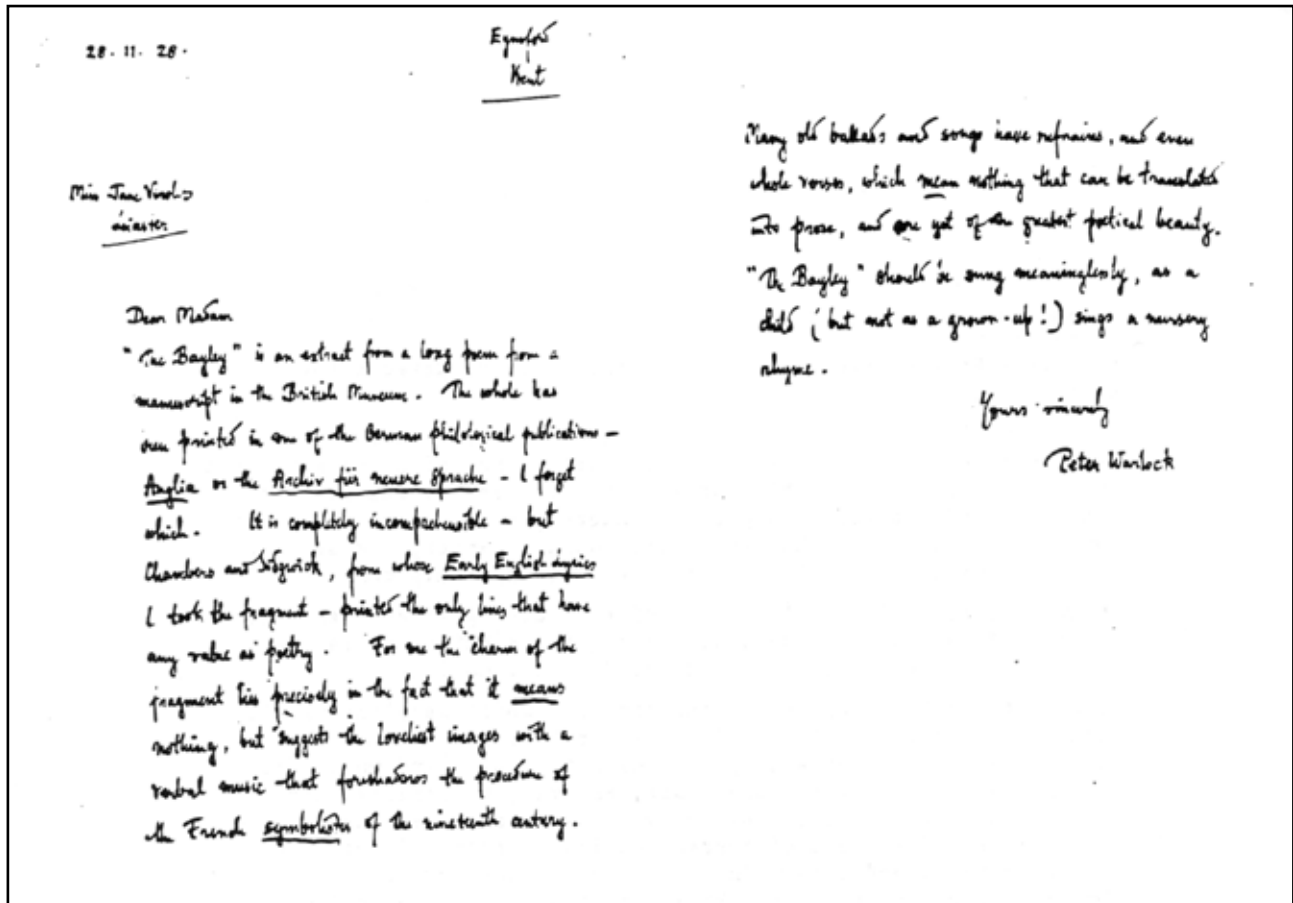 28. 11. 28.
Eynsford
Kent
Miss Jane
Dear Madam
"The Bayley" is an extract from a long poem from a
manuscript in the British Museum. The whole has
been printed in one of the German philological publications –
Anglia or the Archiv für neuere Sprache – I forget
which. It is completely incomprehensible – but
Chambers and Sidgwick, from whose Early English Lyrics
I took the fragment – printed the only lines that have
any value as poetry. For me the charm of the
fragment lies precisely in the fact that it means
nothing, but suggests the loveliest images with a
verbal music that foreshadows the procedure of
the French symbolistes of the nineteenth century.
Many old ballads and songs have refrains, and even
whole verses, which mean nothing that can be translated
into prose, and are yet of the greatest poetical beauty.
"The Bayley" should be sung meaninglessly, as a
child (but not as a grown-up!) sings a nursery
rhyme.
Yours sincerely
Peter Warlock